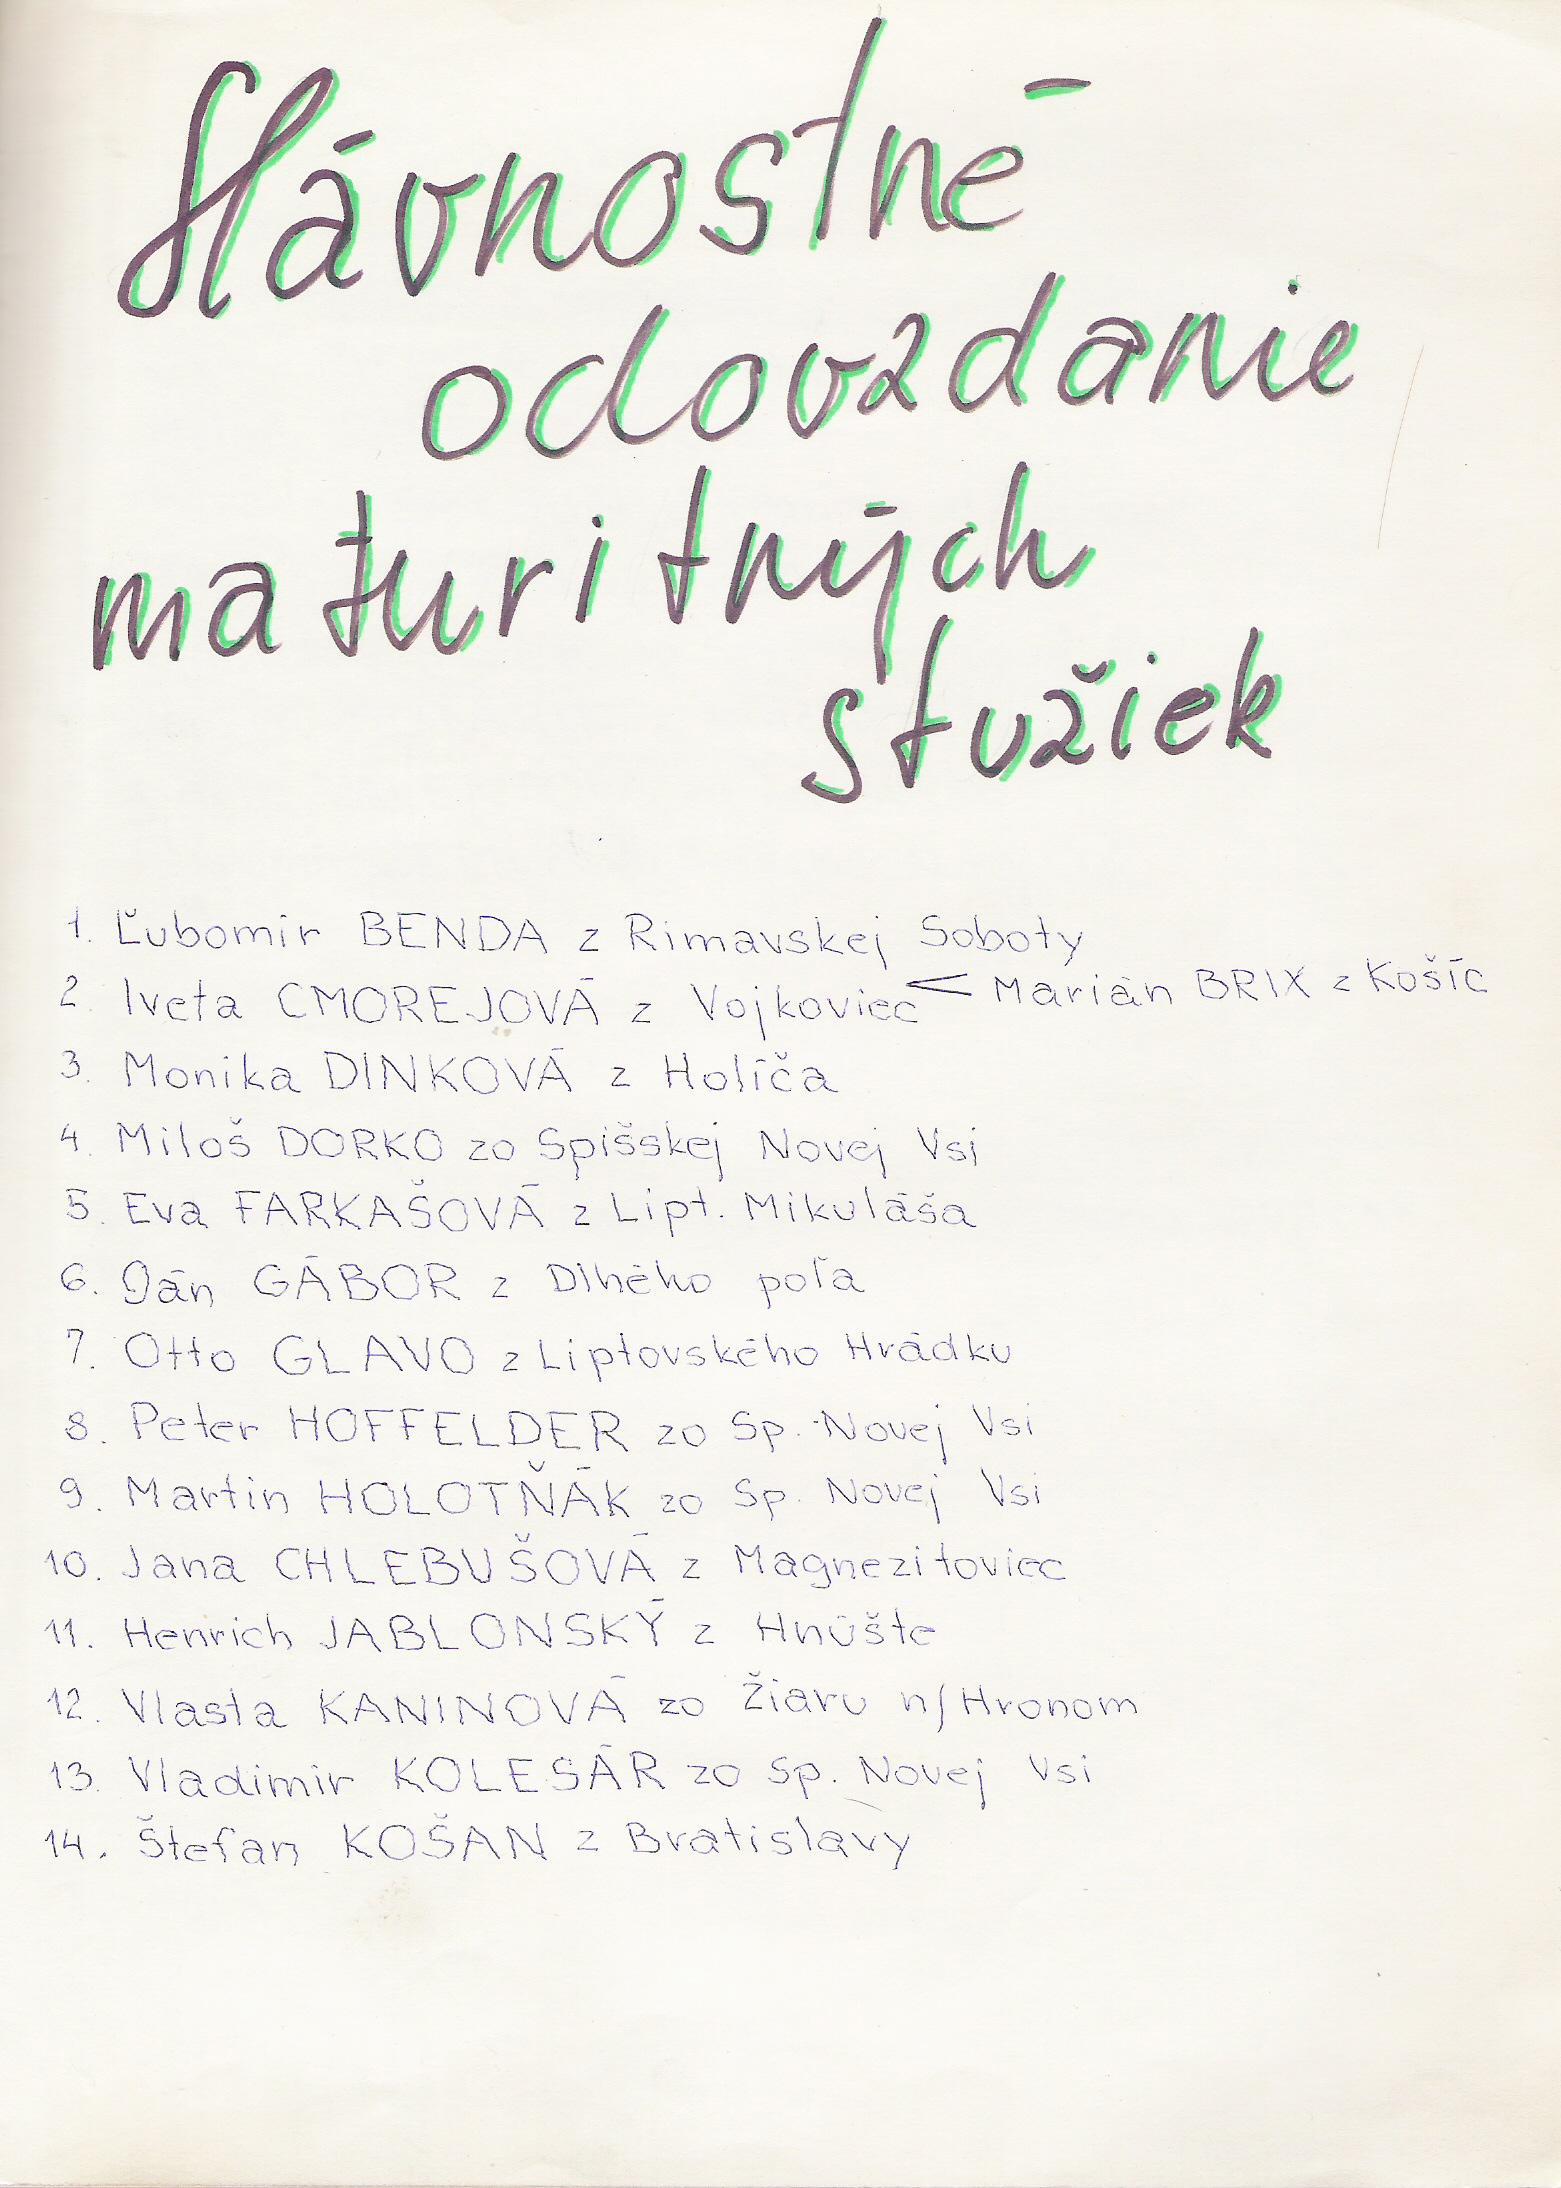 Slávnostné
odovzdanie
maturitných
stužiek
1. Ľubomír BENDA z Rimavskej Soboty
< Marián BRIX z Košíc
2. Iveta CMOREJOVÁ z Vojkoviec
3. Monika DINKOVÁ z Holíča
4. Miloš DORKO zo Spišskej Novej Vsi
5. Eva FARKAŠOVÁ z Lipt. Mikuláša
6. Ján GÁBOR z Dlhého poľa
7. Otto GLAVO z Liptovského Hrádku
8. Peter HOFFELDER zo Sp. Novej Vsi
9. Martin HOLOTŇÁK zo Sp. Novej Vsi
10. Jana CHLEBUŠOVÁ z Magnezitoviec
11. Henrich JABLONSKÝ z Hnúšte
12. Vlasta KANINOVÁ zo Žiaru n/Hronom
13. Vladimír KOLESÁR zo Sp. Novej Vsi
14. Štefan KOŠAN z Bratislavy